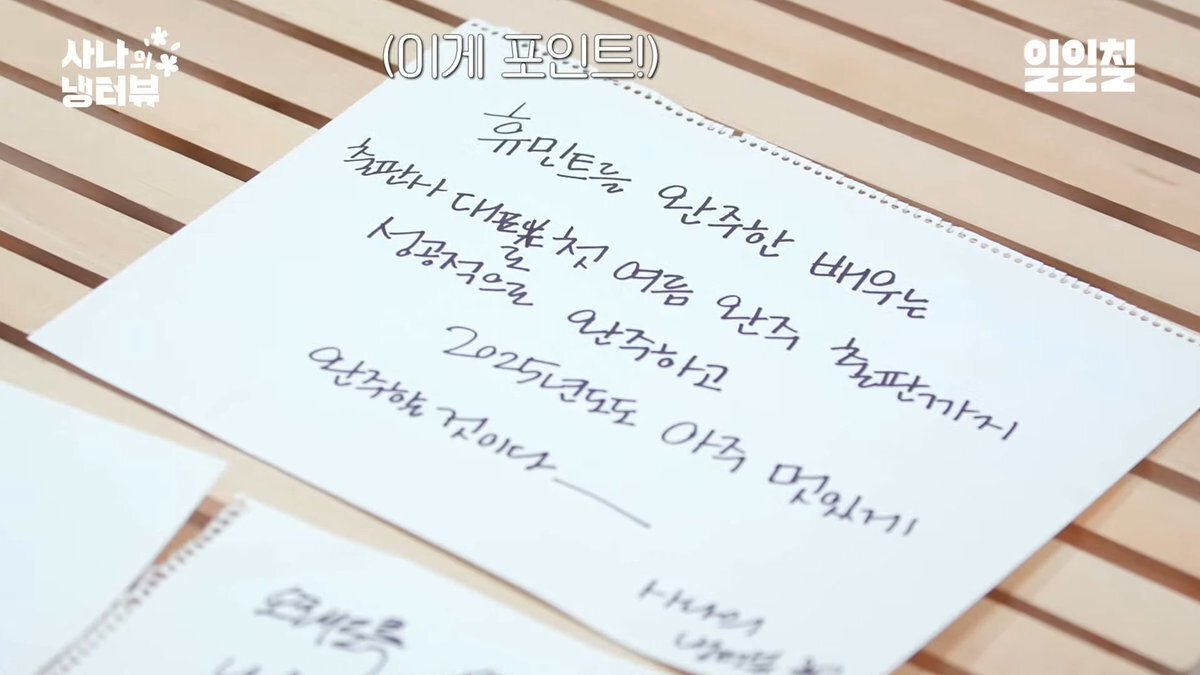 사나의
냉터뷰
(이게 포인트!)
일일칠
휴민트를 완주한 배우는
출판사 대표로 첫 여름 완주 출판까지
성공적으로 완주하고
2025년도도 아주 멋있게
완주할 것이다
사나의
냉터뷰